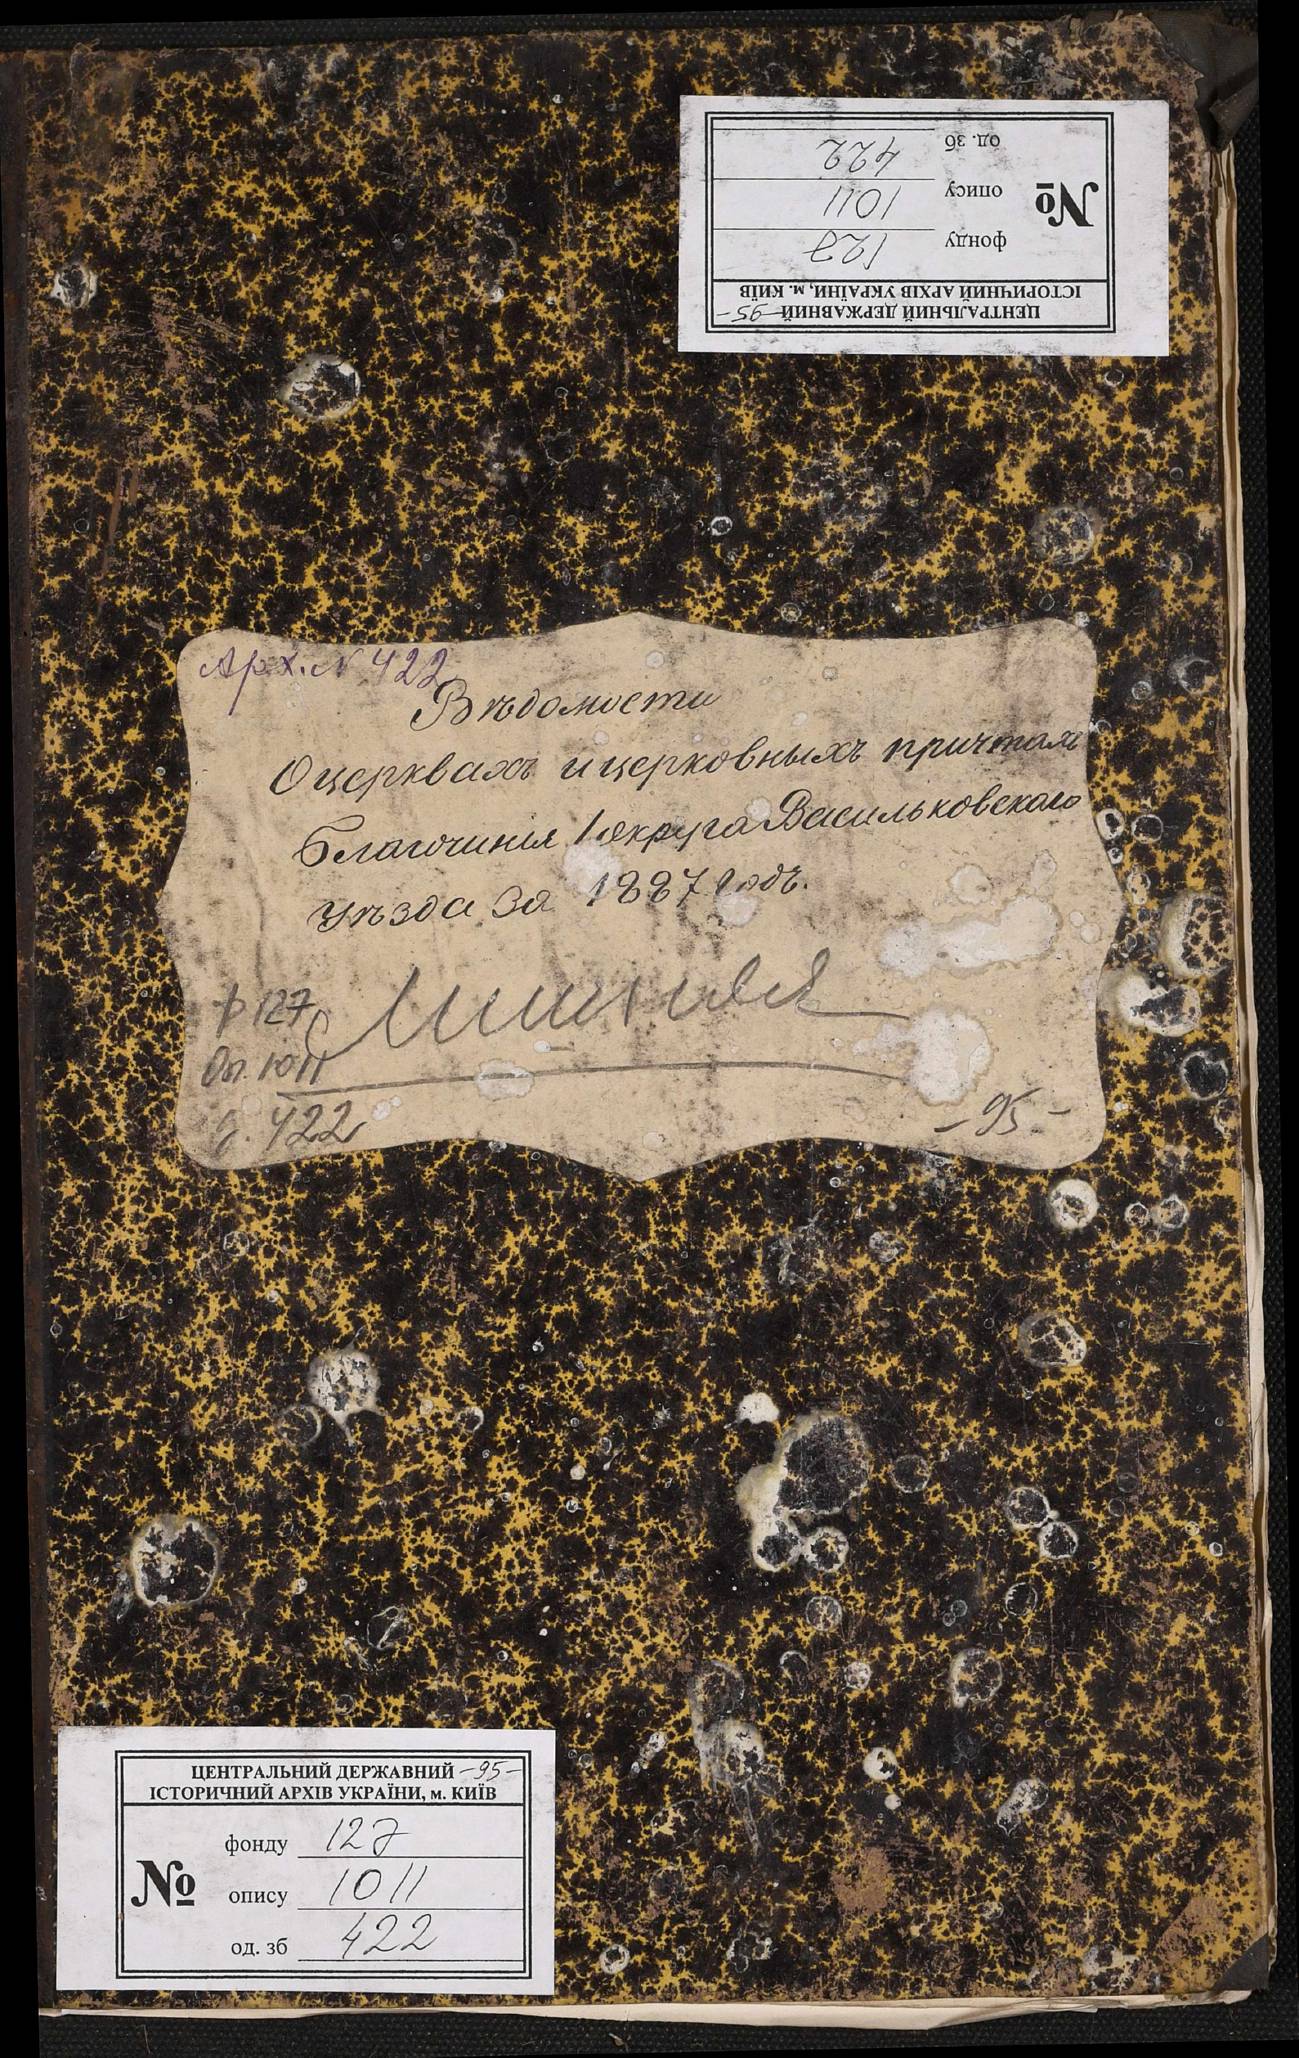 ЦЕНТРАЛЬНИЙ ДЕРЖАВНИЙ -95-
ІСТОРИЧНИЙ АРХІВ УКРАЇНИ, м. КИЇВ
№
фонду 127
опису 1011
од. зб 422
Арх. № 422
Вѣдомости
О церквахъ и церковныхъ причтахъ
Благочинія 1 округа Васильковскаго
уѣзда за 1887 годъ.
ф 127
оп. 1011
д. 422
-95-
ЦЕНТРАЛЬНИЙ ДЕРЖАВНИЙ -95-
ІСТОРИЧНИЙ АРХІВ УКРАЇНИ, м. КИЇВ
№
фонду 127
опису 1011
од. зб 422